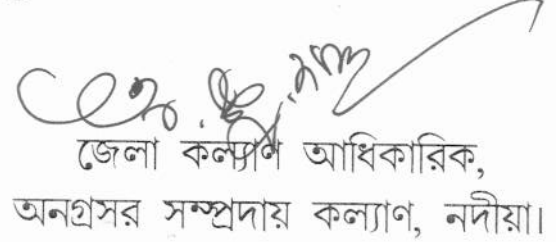 জেলা কল্যাণ আধিকারিক,
অনগ্রসর সম্প্রদায় কল্যাণ, নদীয়া।